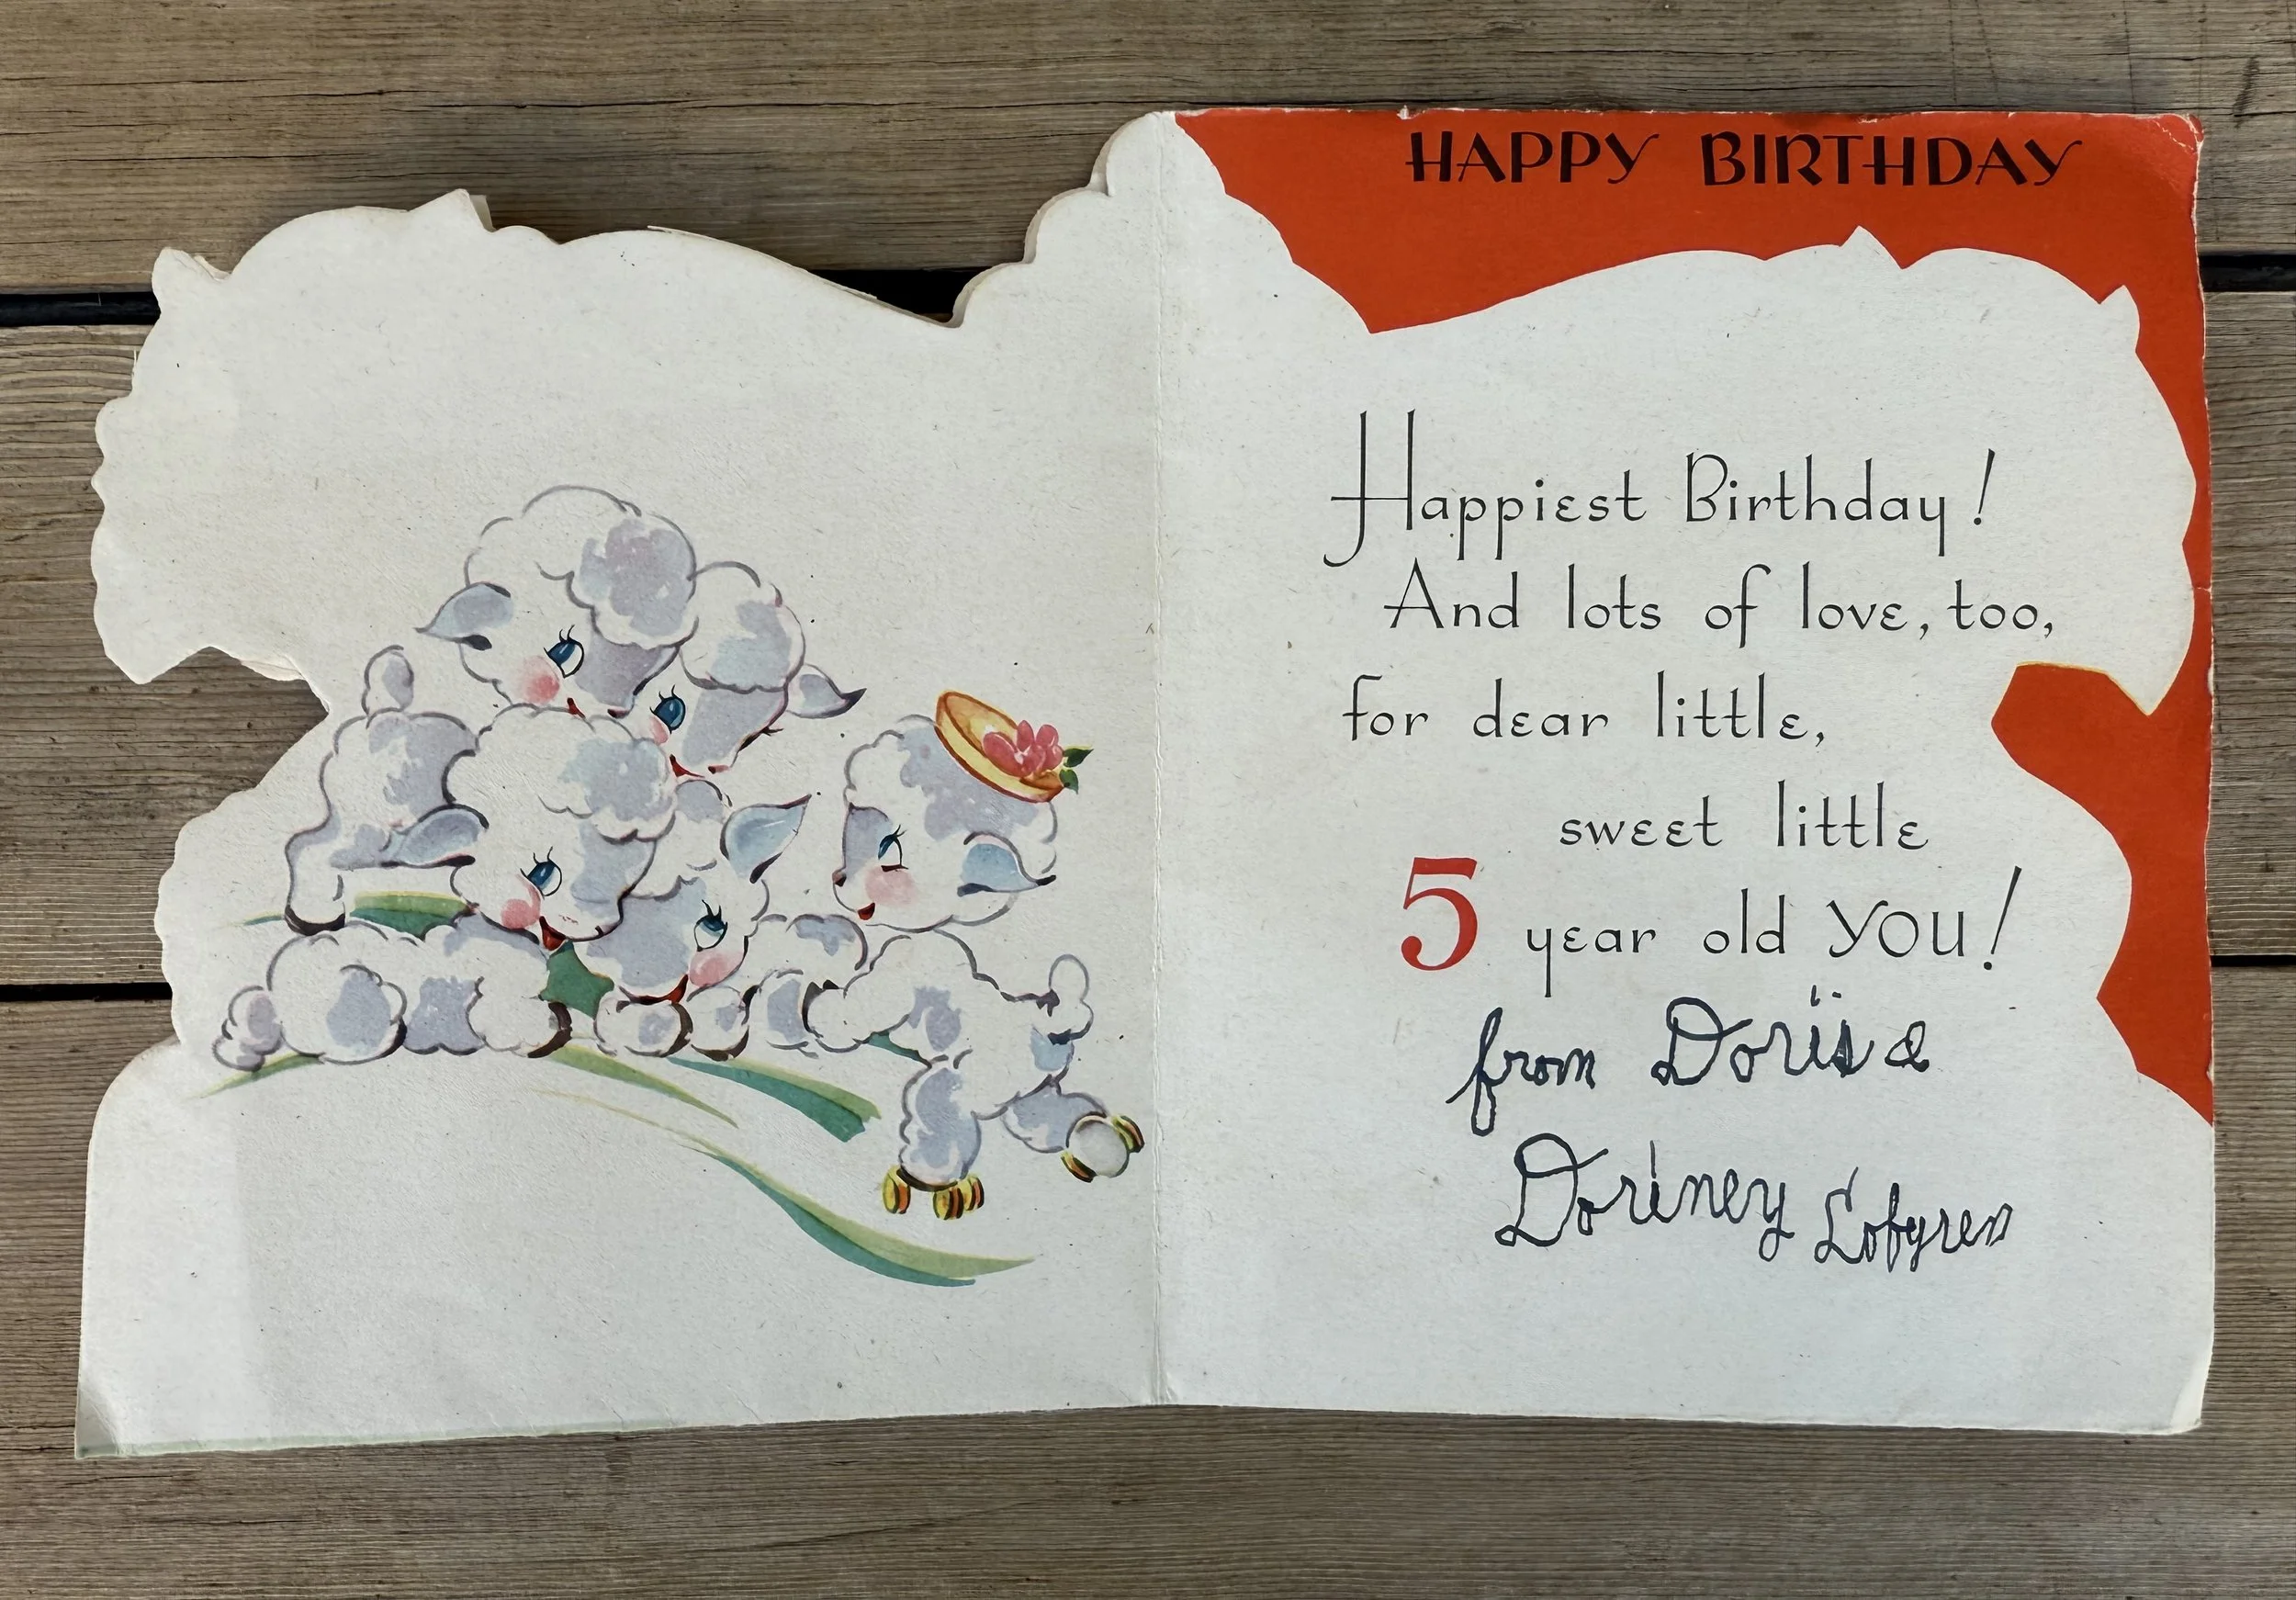 HAPPY BIRTHDAY
Happiest Birthday!
And lots of love, too,
for dear little,
sweet little
5 year old YOU!
from Doris &
Doriney Lofgren